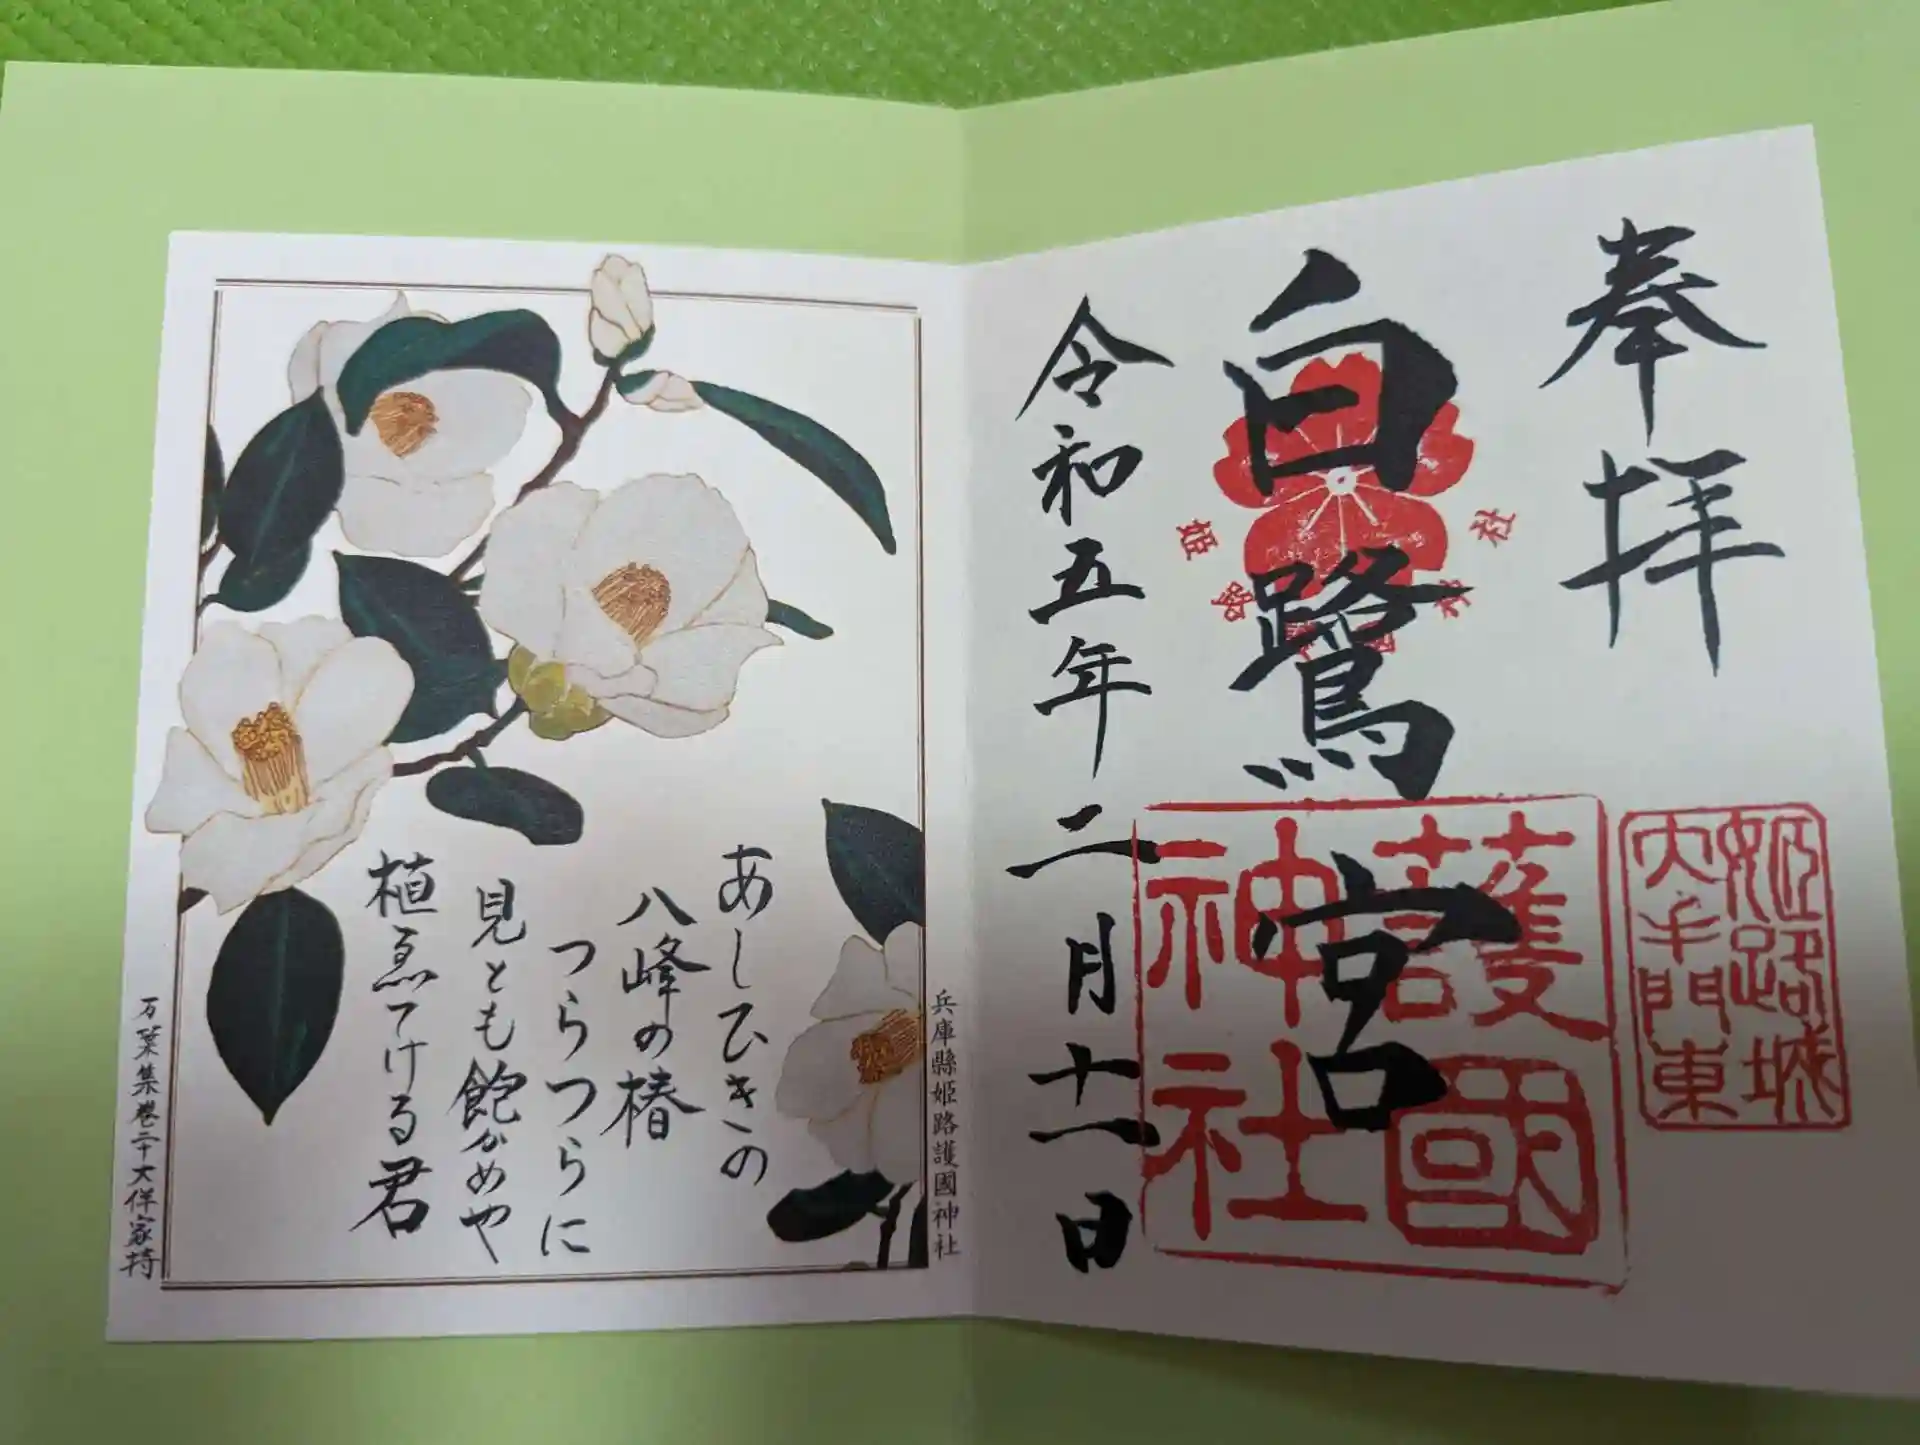 奉拝
白鷺宮
令和五年二月十一日
姫路城
大手門東
護國
神社
兵庫縣姫路護國神社
あしひきの
八峰の椿
つらつらに
見とも飽かめや
植ゑてける君
万葉集巻二十大伴家持